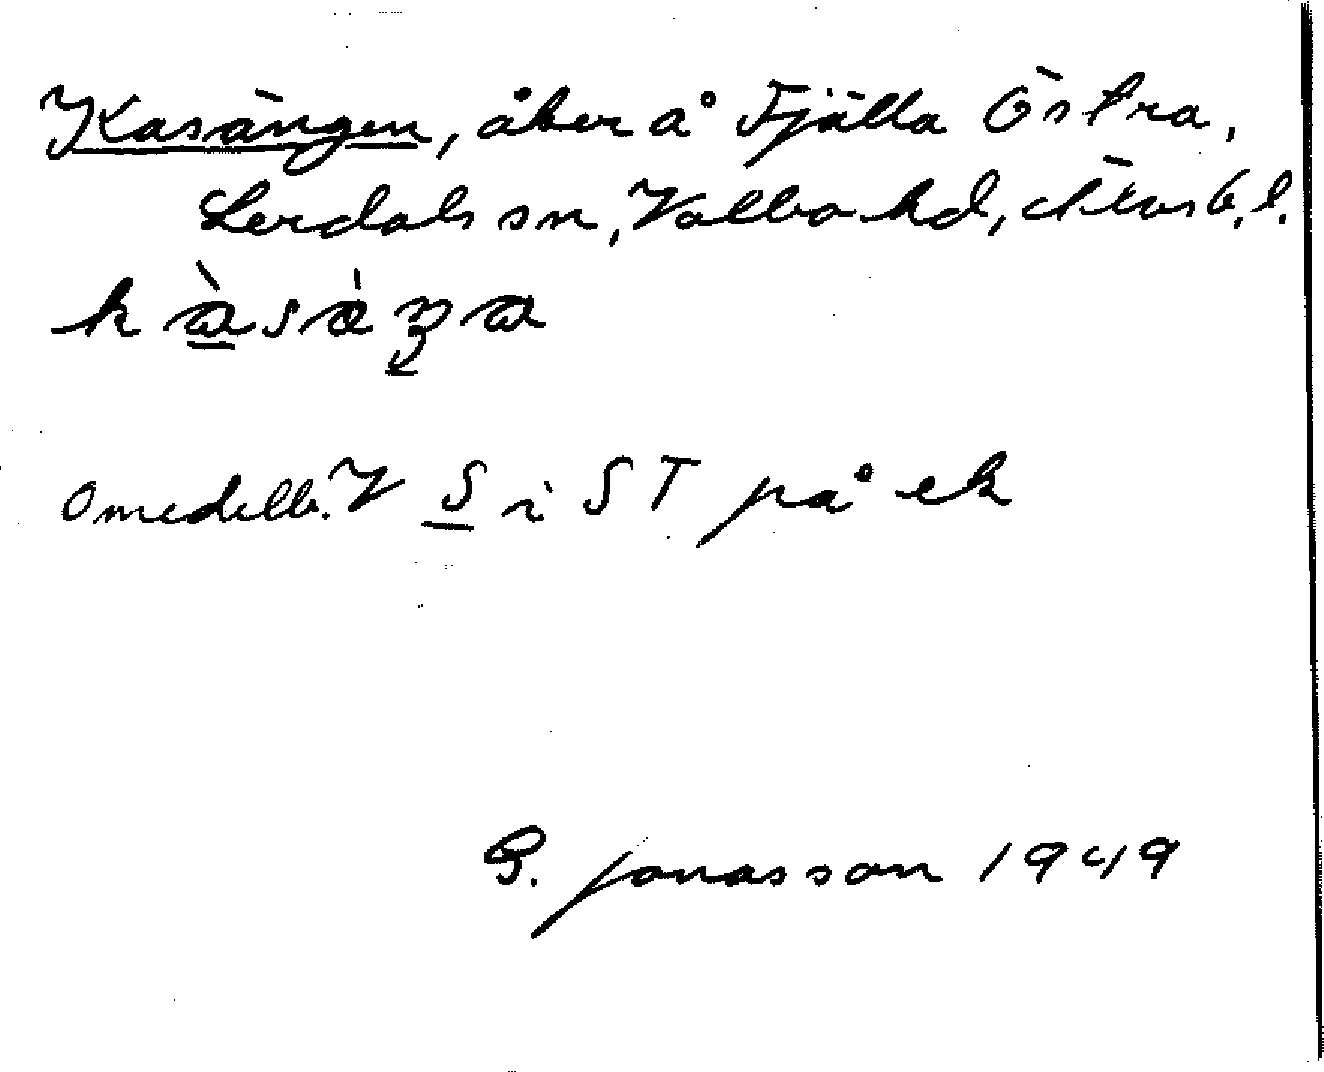 Kasängen, åker å Fjälla Östra,
Lerdals sn, Valbo hd, Älvsb. l.
kàsáŋa
Omedelb. V S i ST på ek
G. Jonasson 1949